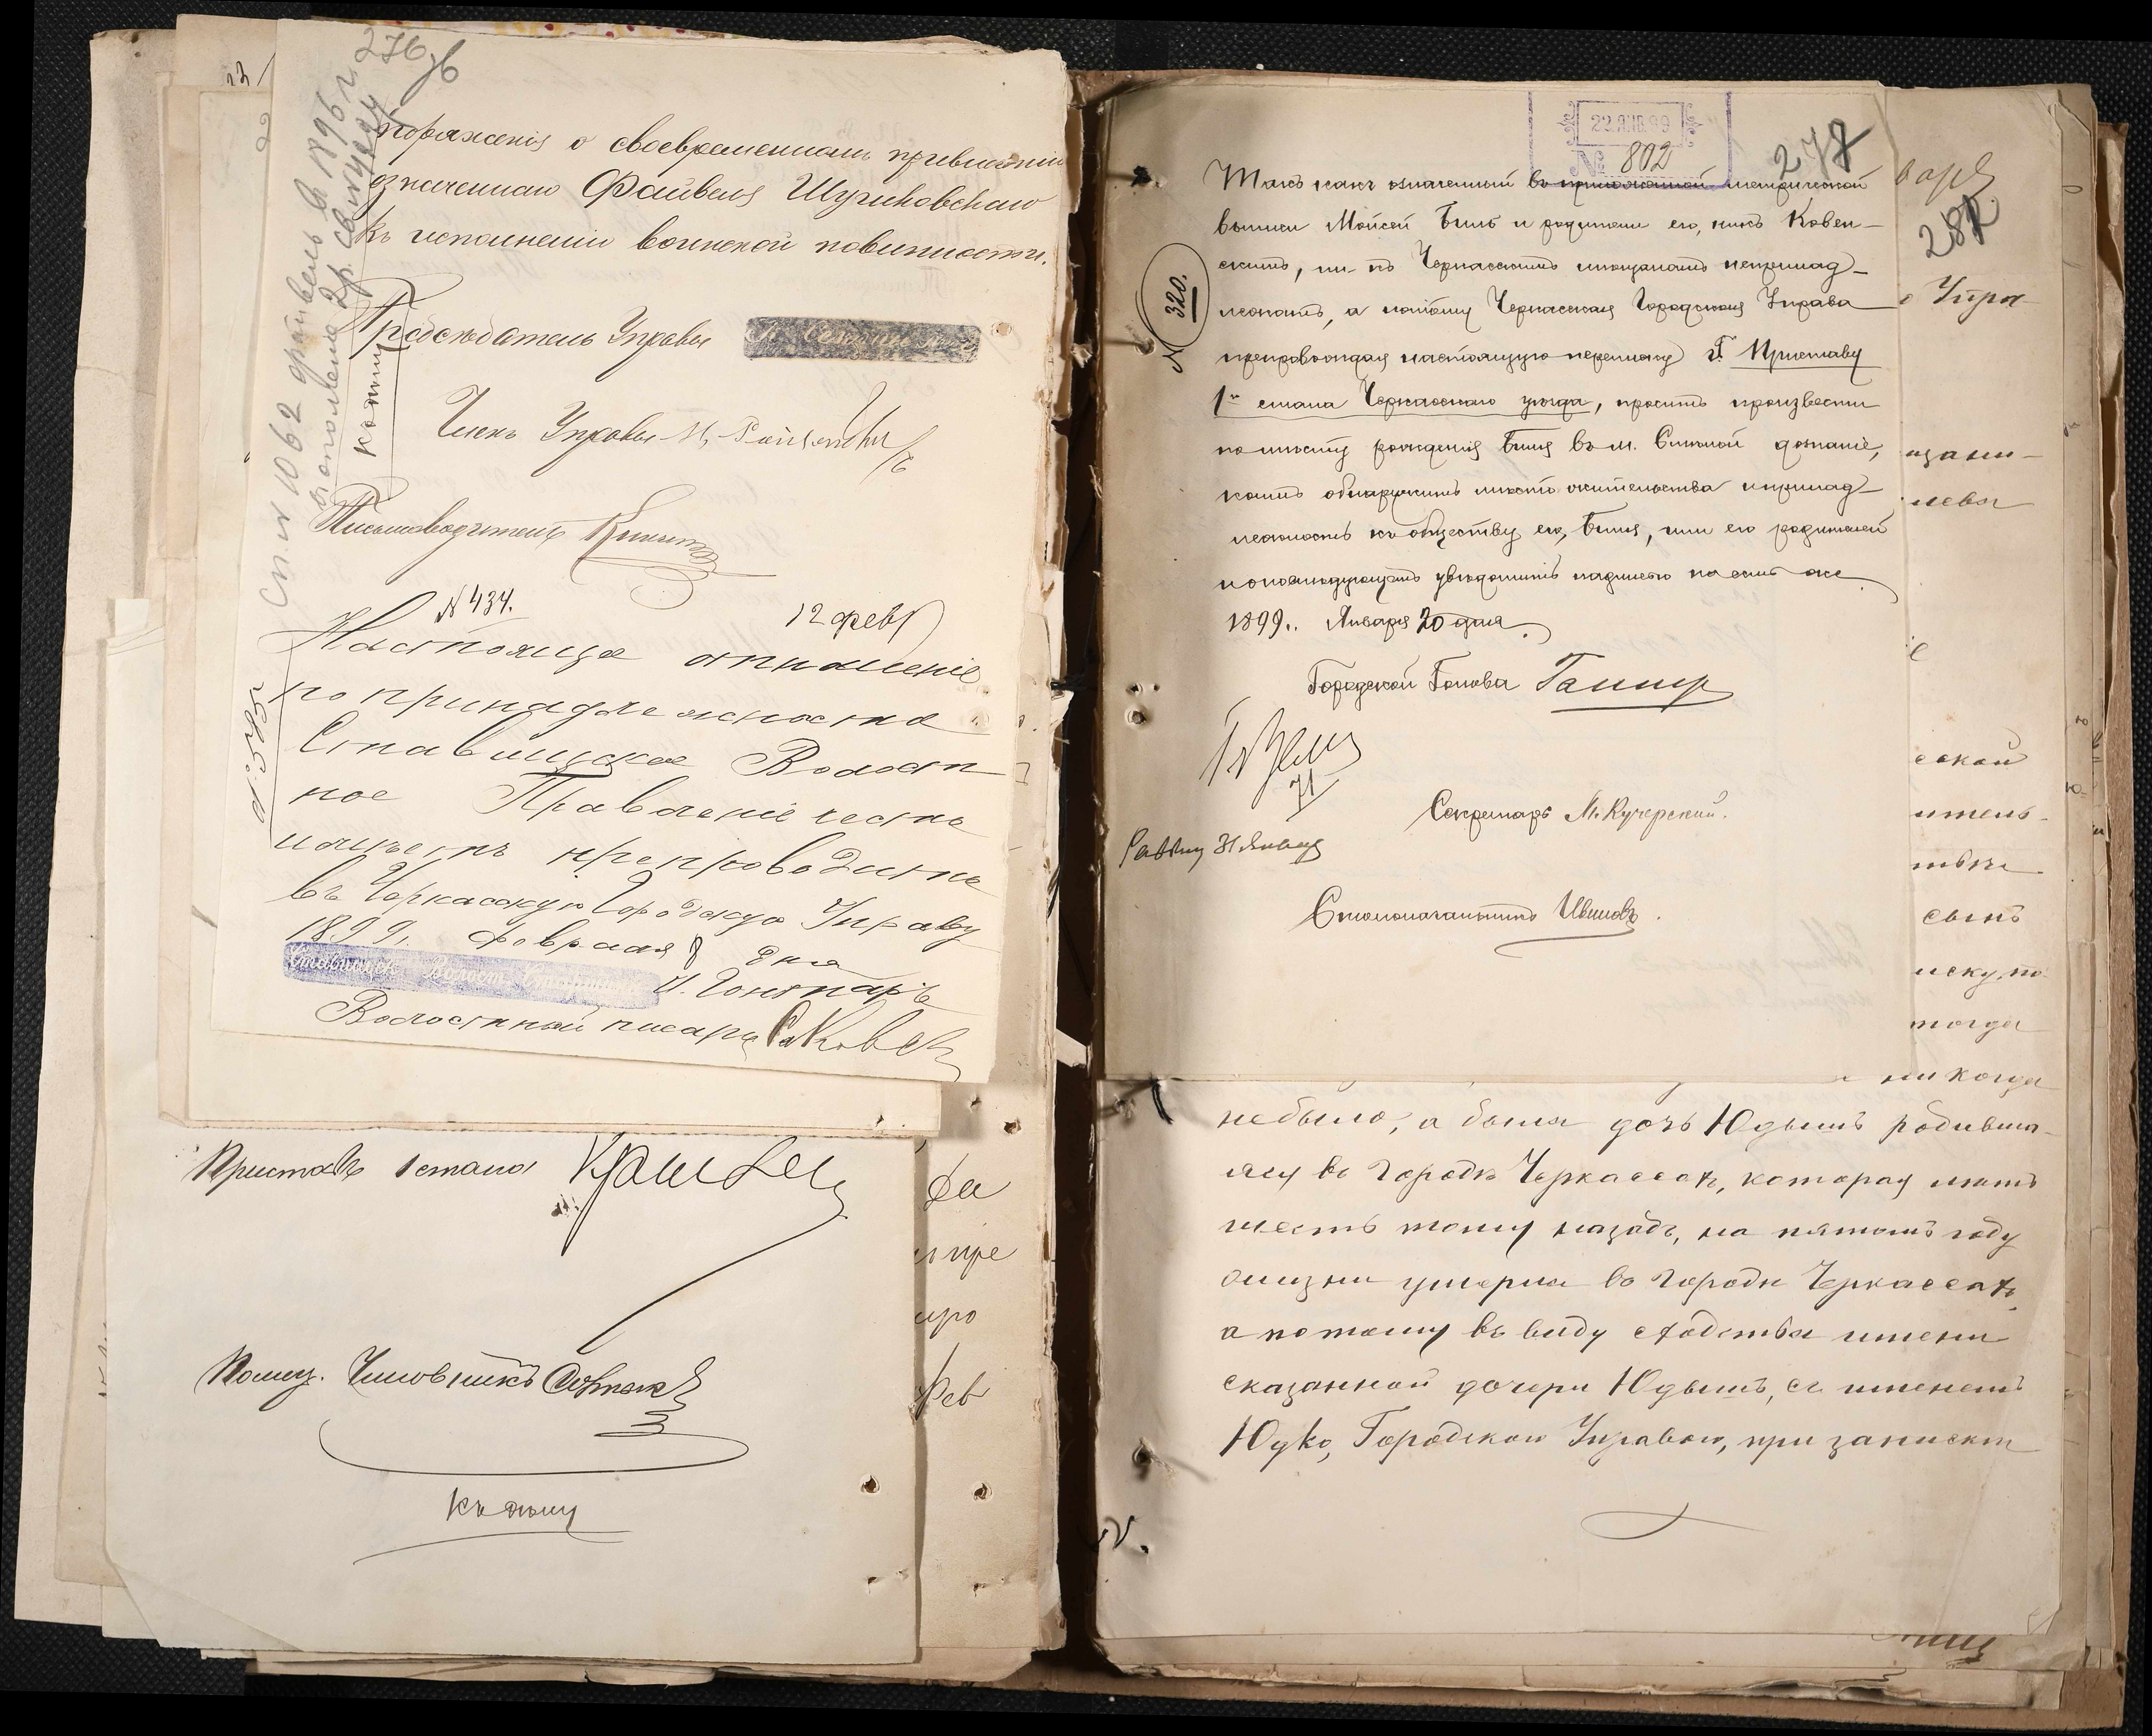 276 об
поряженія о своевременномъ привлеченіи
означеннаго Файвеля Шугиновскаго
къ исполненію воинской повинности.
Предсѣдатель Управы
Членъ Управы
Письмоводитель
N 434.
12 февр
Настоящее отношеніе
по принадлежности
Ставищское Волост
ное Правленіе честь
имѣетъ препроводить
въ Черкасскую Городскую Управу
1899 г. Февраля 8 дня
И. Гончаръ
Волостной писарь
N 585
Сп. N 1062
въ 1896 г.
Приставъ 1 стана
Помощ.
Къ дѣлу
Фев
22 ЯНВ.99
№ 802
277
Такъ какъ означенный въ приложенной метрической
выписи Мойсей Биль и родители его, какъ Ковен-
скимъ, ни къ Черкасскимъ мѣщанамъ непринад-
лежатъ, а потому Черкасская Городская Управа
препровождая настоящую переписку Г. Приставу
1го стана Черкасскаго уѣзда, проситъ произвести
по мѣсту рожденія Биля въ м. Смѣлой дознаніе,
коимъ обнаружить мѣсто жительства и принад-
лежность къ обществу его, Биля, или его родителей
и о послѣдующемъ увѣдомить надписью на семъ же
1899 г. Января 20 дня.
N 320.
Городской Голова
Секретарь М. Кучерскій.
31 Января
Столоначальникъ Ивановъ.
282
Упра
ской
итель-
сынъ
иску, по
тогда
никогда
небыло, а была дочь Юдышъ родивша-
яся въ городѣ Черкассахъ, которая лѣтъ
шесть тому назадъ, на пятомъ году
жизни умерла въ городѣ Черкассахъ,
а потому въ виду сходства имени
сказанной дочери Юдышъ, съ именемъ
Юдко, Городскою Управою, при запискѣ